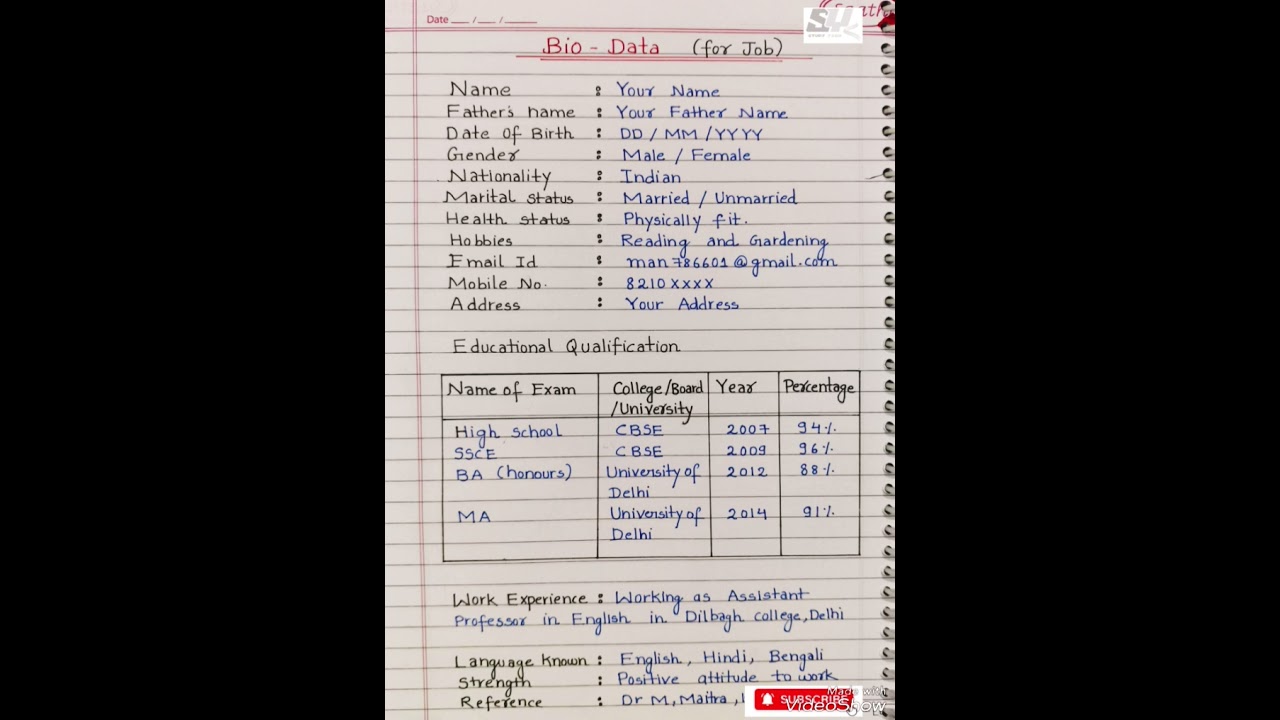 Date ___ / ___ / ______
Bio - Data (for Job)
Name : Your Name
Father's name : Your Father Name
Date Of Birth : DD / MM / YYYY
Gender : Male / Female
Nationality : Indian
Marital status : Married / Unmarried
Health status : Physically fit.
Hobbies : Reading and Gardening
Email Id : man786601@gmail.com
Mobile No. : 8210xxxx
Address : Your Address
Educational Qualification
Name of Exam College/Board Year Percentage
/University
High School CBSE 2007 94%
SSCE CBSE 2009 96%
BA (honours) University of 2012 88%
Delhi
MA University of 2014 91%
Delhi
Work Experience : Working as Assistant
Professor in English in Dilbagh college, Delhi
Language Known : English, Hindi, Bengali
Strength : Positive attitude to work
Reference : Dr M, Maitra,
SUBSCRIBE
Made with
VideoShow